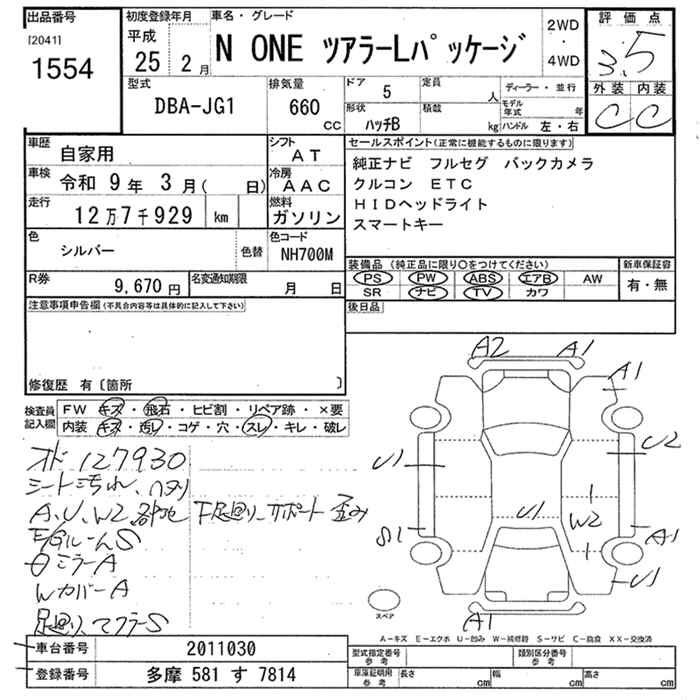 出品番号
[2041]
1554
初度登録年月
平成
25 2月
車名・グレード
N ONE ツアラーLパッケージ
2WD
・
4WD
評価点
3.5
外装 内装
C C
型式
DBA-JG1
排気量
660
cc
ドア
5
定員
人
形状
ハッチB
積載
kg
ディーラー・並行
モデル年式
年
ハンドル 左・右
車歴
自家用
シフト
AT
車検
令和 9年 3月( 日)
冷房
AAC
走行
12万7千929 km
燃料
ガソリン
色
シルバー
色替
色コード
NH700M
R券
9,670円
名変通知期限
月 日
セールスポイント(正常に機能するものに限ります)
純正ナビ フルセグ バックカメラ
クルコン ETC
HIDヘッドライト
スマートキー
装備品(純正品に限り○をつけてください)
PS PW ABS エアB AW
SR ナビ TV カワ
新車保証容
有・無
後日品
注意事項申告欄(不具合内容等は具体的に記入して下さい)
修復歴 有〔箇所 〕
検査員
記入欄
FW キズ・飛石・ヒビ割・リペア跡・×要
内装 キズ・汚レ・コゲ・穴・スレ・キレ・破レ
オド127930
シート汚れ、ヘタリ
A、U、W2、各部 下廻り、サポート歪み
E/GルームS
ミラーA
WカバーA
足廻り、マフラーS
A2 A1
A1
U2
U1
U1
W2
S1
A1
U1
A1
スペア
A-キズ E-エクボ U-凹み W-補修跡 S-サビ C-腐食 XX-交換済
車台番号
2011030
登録番号
多摩 581 す 7814
型式指定番号
参考
類別区分番号
参考
車庫証明用
参考
長さ cm
幅 cm
高さ cm